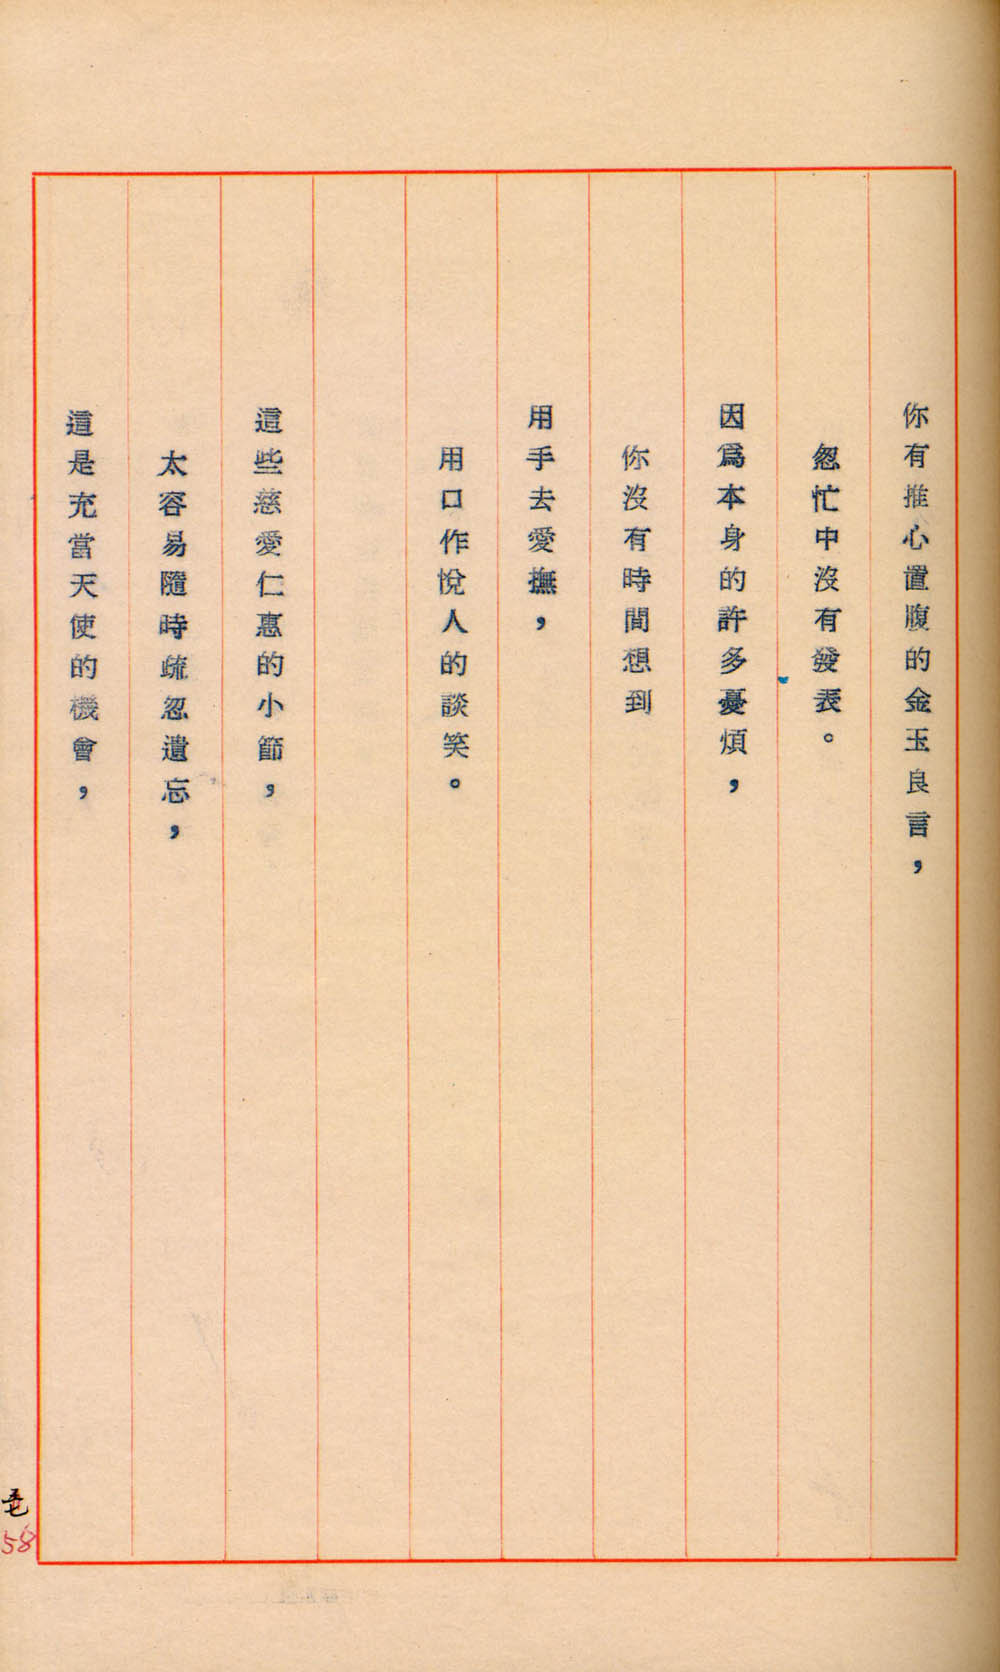 你有推心置腹的金玉良言，
忽忙中沒有發表。
因爲本身的許多憂煩，
你沒有時間想到
用手去愛撫，
用口作悅人的談笑。
這些慈愛仁惠的小節，
太容易隨時疏忽遺忘，
這是充當天使的機會，
58